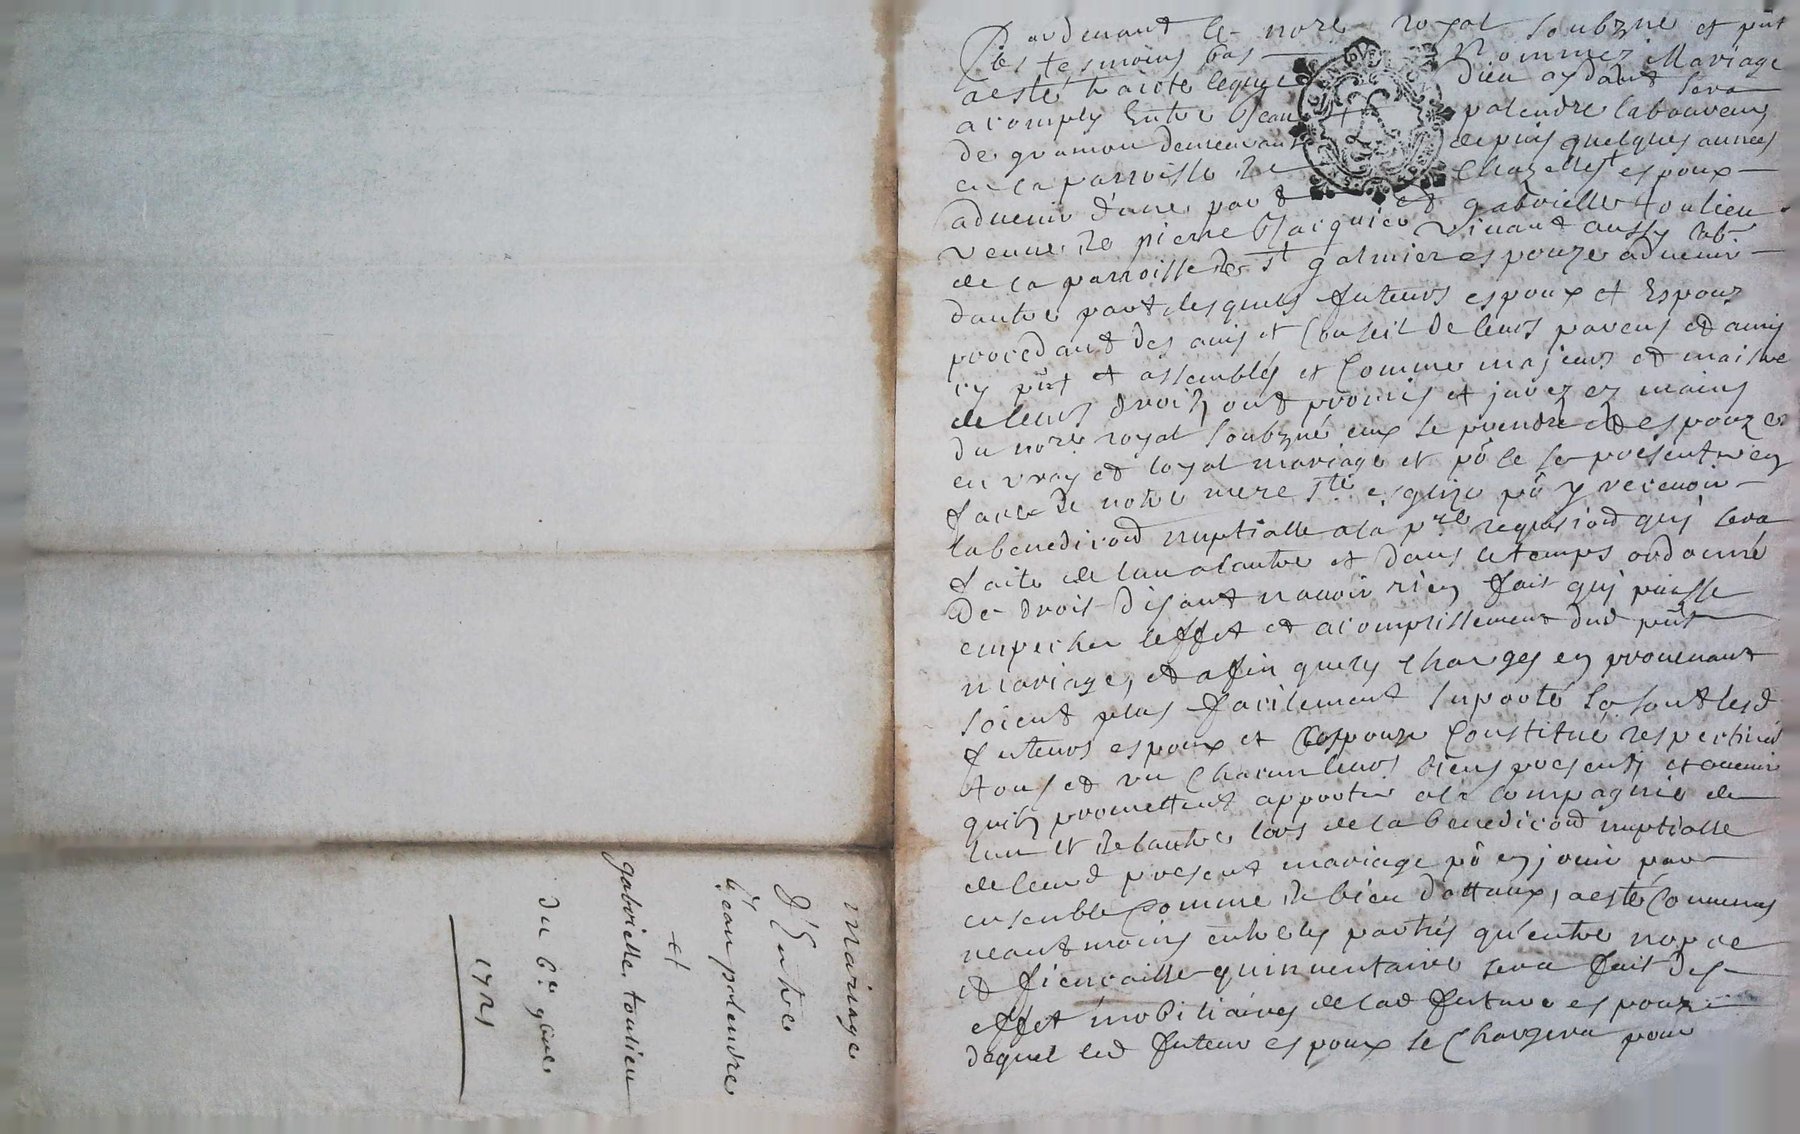 mariage
D'Entre
jean polendre
et
gabrielle toulieu
du 6e 9bre
1721
Pardevant le nore royal soubzne et pnt
les tesmoins bas nommez Mariage
a esté traicté lequel Dieu aydant sera
acomply Entre Jean polendre laboureur
de gramon demeurant depuis quelques années
en la parroisse de Chazelles espoux
aduenir d'une part et gabrielle toulieu
veuue de pierre Jacquier viuant aussy labr
de la parroisse de st galmier espouze aduenir
dautre part lesquels futeurs espoux et Espouz
procedant des auis et Conseil de leurs parens et amis
icy pnt et assemblés et Comme majeurs et maistre
de leurs droitz ont promis et jurez ez mains
du nore royal soubzné eux se prendre et espouzer
en vray et loyal mariage et pō ce se presenter en
face de notre mere ste esglize pō y receuoir
la benediction nuptialle a la pre requision quy sera
faite de lun a lautre et dans le temps ordonné
De droit Disant nauoir rien fait quy puisse
empecher leffet et acomplissement dud pnt
mariage, et afin que les charges en prouenant
soient plus facilement suporté se sont lesd
futeurs espoux et Espouze Constitué respectiué
tous et un chacun leurs biens presents et auenir
quils promettent apporter a la compagnie de
lun et de lautre lors de la benediction nuptialle
de leurd present mariage pō en jouir par
ensemble comme de bien dottaux, a esté Conuenus
neantmoins entre les parties quentre nopce
et fiencaille quinuentaire sera fait des
effet mobiliaires de lad future espouze
duquel led futeur espoux se chargera pour